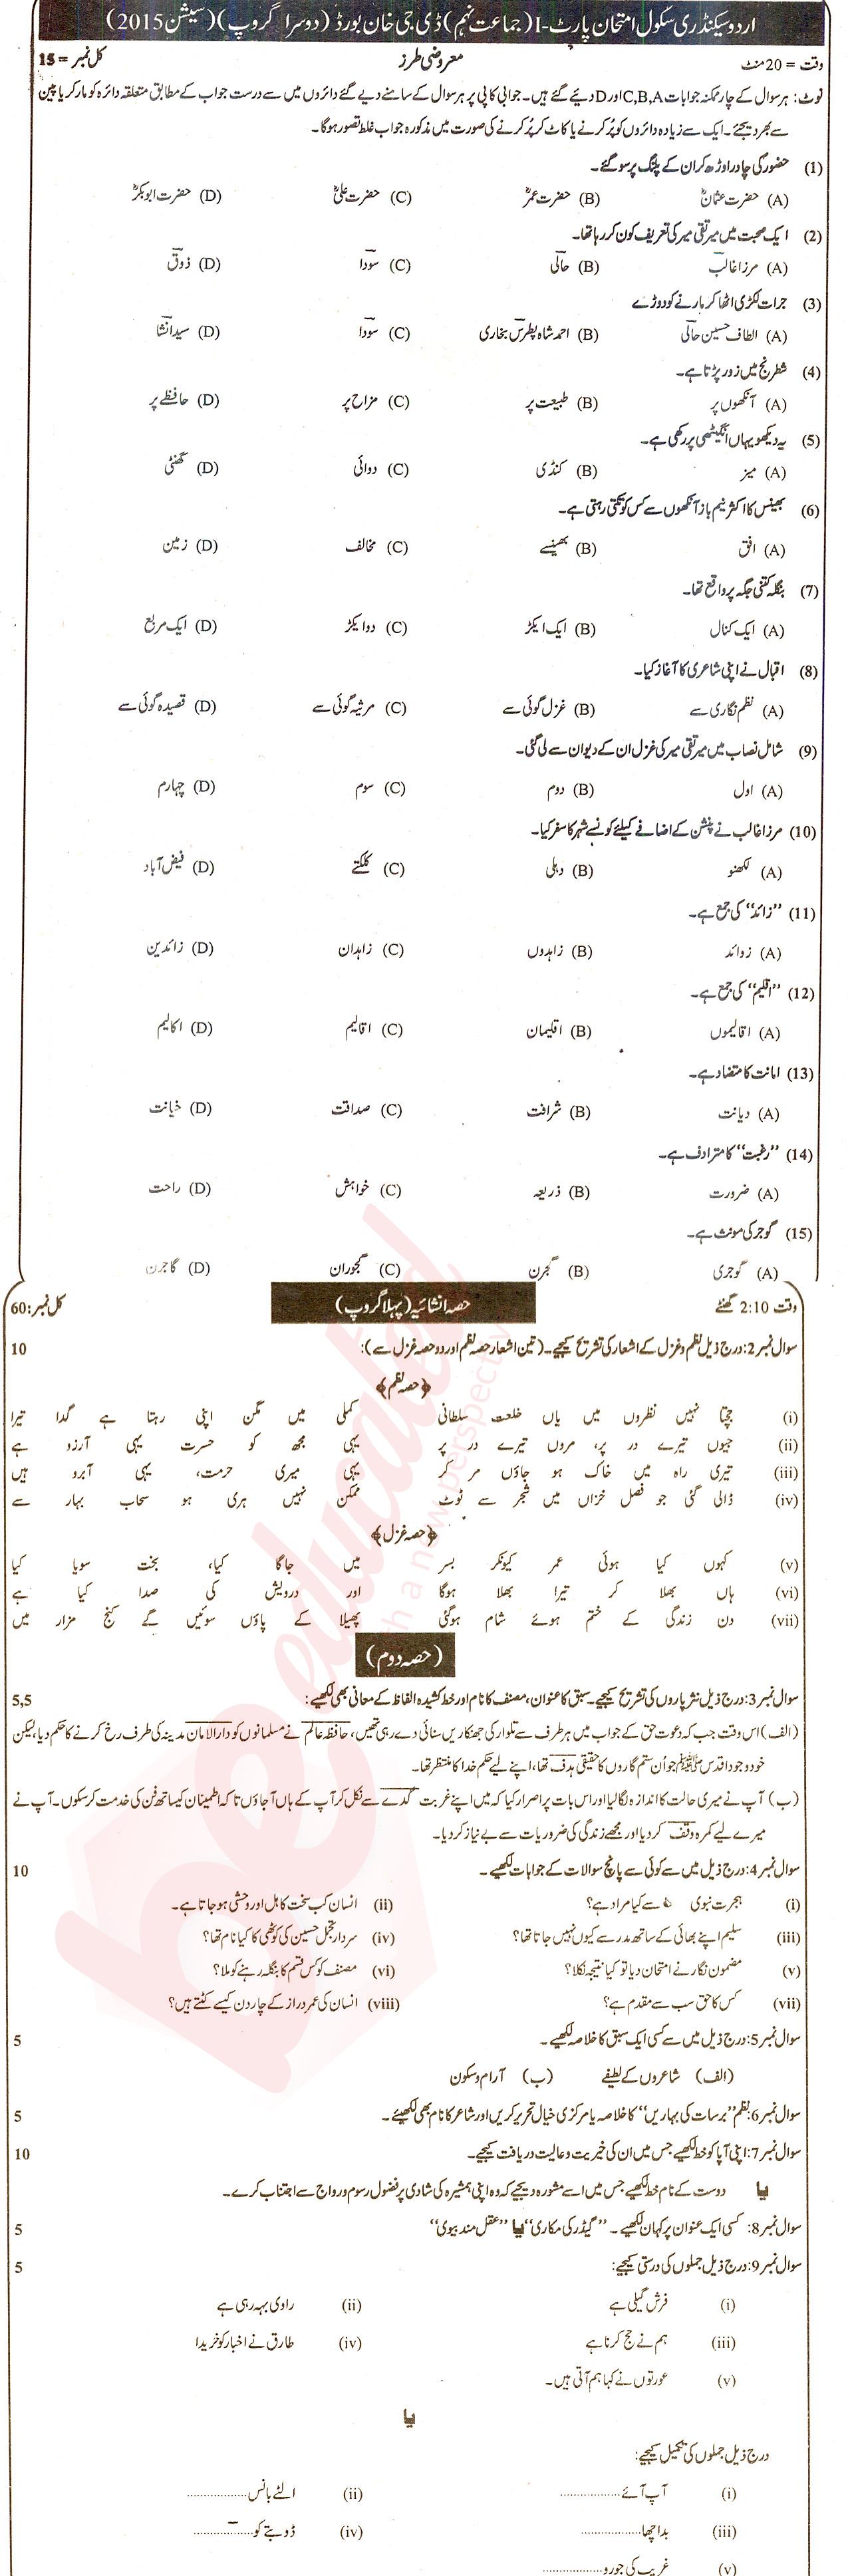 اردو سیکنڈری سکول امتحان پارٹ-I (جماعت نہم) ڈی جی خان بورڈ (دوسرا گروپ) (سیشن 2015)
وقت = 20 منٹ معروضی طرز کل نمبر = 15
نوٹ: ہر سوال کے چار ممکنہ جوابات C,B,A اور D دیئے گئے ہیں۔ جوابی کاپی پر ہر سوال کے سامنے دیے گئے دائروں میں سے درست جواب کے مطابق متعلقہ دائرہ کو مارکر یا پین
سے بھر دیجئے۔ ایک سے زیادہ دائروں کو پُر کرنے یا کاٹ کر پُر کرنے کی صورت میں مذکورہ جواب غلط تصور ہوگا۔
(1) حضورؐ کی چادر اوڑھ کر ان کے پلنگ پر سو گئے۔
(A) حضرت عثمانؓ (B) حضرت عمرؓ (C) حضرت علیؓ (D) حضرت ابوبکرؓ
(2) ایک صحبت میں میر تقی میر کی تعریف کون کر رہا تھا۔
(A) مرزا غالب (B) حالی (C) سودا (D) ذوق
(3) جرات لکڑی اٹھا کر مارنے کو دوڑے
(A) الطاف حسین حالی (B) احمد شاہ پطرس بخاری (C) سودا (D) سید انشا
(4) شطرنج میں زور پڑتا ہے۔
(A) آنکھوں پر (B) طبیعت پر (C) مزاح پر (D) حافظے پر
(5) یہ دیکھو یہاں انگیٹھی پر رکھی ہے۔
(A) میز (B) کنڈی (C) دوائی (D) گھنٹی
(6) بھینس کا اکثر نیم باز آنکھوں سے کس کو تکتی رہتی ہے۔
(A) افق (B) بھینسے (C) مخالف (D) زمین
(7) بنگلہ کتنی جگہ پر واقع تھا۔
(A) ایک کنال (B) ایک ایکڑ (C) دو ایکڑ (D) ایک مربع
(8) اقبال نے اپنی شاعری کا آغاز کیا۔
(A) نظم نگاری سے (B) غزل گوئی سے (C) مرثیہ گوئی سے (D) قصیدہ گوئی سے
(9) شامل نصاب میں میر تقی میر کی غزل ان کے دیوان سے لی گئی۔
(A) اول (B) دوم (C) سوم (D) چہارم
(10) مرزا غالب نے پنشن کے اضافے کیلئے کونسے شہر کا سفر کیا۔
(A) لکھنو (B) دہلی (C) کلکتے (D) فیض آباد
(11) ”زائد“ کی جمع ہے۔
(A) زوائد (B) زاہدوں (C) زاہدان (D) زائدین
(12) ”اقلیم“ کی جمع ہے۔
(A) اقالیموں (B) اقلیمان (C) اقالیم (D) اکالیم
(13) امانت کا متضاد ہے۔
(A) دیانت (B) شرافت (C) صداقت (D) خیانت
(14) ”رغبت“ کا مترادف ہے۔
(A) ضرورت (B) ذریعہ (C) خواہش (D) راحت
(15) گوجر کی مونث ہے۔
(A) گوجری (B) گجرن (C) گجوران (D) گاجرن
وقت 2:10 گھنٹے حصہ انشائیہ (پہلا گروپ) کل نمبر: 60
سوال نمبر 2: درج ذیل نظم و غزل کے اشعار کی تشریح کیجیے۔ (تین اشعار حصہ نظم اور دو حصہ غزل سے): 10
﴿حصہ نظم﴾
(i) جچتا نہیں نظروں میں یاں خلعت سلطانی کملی میں مگن اپنی رہتا ہے گدا تیرا
(ii) جیوں تیرے در پر، مروں تیرے در پر یہی مجھ کو حسرت یہی آرزو ہے
(iii) تیری راہ میں خاک ہو جاؤں مر کر یہی میری حرمت، یہی آبرو ہیں
(iv) ڈالی گئی جو فصل خزاں میں شجر سے ٹوٹ ممکن نہیں ہری ہو سحاب بہار سے
﴿حصہ غزل﴾
(v) کہوں کیا ہوئی عمر کیونکر بسر میں جاگا کیا، بخت سویا کیا
(vi) ہاں بھلا کر تیرا بھلا ہوگا اور درویش کی صدا کیا ہے
(vii) دن زندگی کے ختم ہوئے شام ہوگئی پھیلا کے پاؤں سوئیں گے کنج مزار میں
(حصہ دوم)
سوال نمبر 3: درج ذیل نثر پاروں کی تشریح کیجیے۔ سبق کا عنوان، مصنف کا نام اور خط کشیدہ الفاظ کے معانی بھی لکھیے: 5,5
(الف) اس وقت جب کہ دعوت حق کے جواب میں ہر طرف سے تلوار کی جھنکاریں سنائی دے رہی تھیں، حافظ عالم نے مسلمانوں کو دارالامان مدینہ کی طرف رخ کرنے کا حکم دیا، لیکن
خود وجود اقدس ﷺ جو اُن ستم گاروں کا حقیقی ہدف تھا، اپنے لیے حکم خدا کا منتظر تھا۔
(ب) آپ نے میری حالت کا اندازہ لگا لیا اور اس بات پر اصرار کیا کہ میں اپنے غربت کدے سے نکل کر آپ کے ہاں آ جاؤں تاکہ اطمینان کیساتھ فن کی خدمت کر سکوں۔ آپ نے
میرے لیے کمرہ وقف کر دیا اور مجھے زندگی کی ضروریات سے بے نیاز کر دیا۔
سوال نمبر 4: درج ذیل میں سے کوئی سے پانچ سوالات کے جوابات لکھیے۔ 10
(i) ہجرت نبوی سے کیا مراد ہے؟ (ii) انسان کب سخت کاہل اور وحشی ہو جاتا ہے۔
(iii) سلیم اپنے بھائی کے ساتھ مدرسے کیوں نہیں جاتا تھا؟ (iv) سردار تجمل حسین کی کوٹھی کا کیا نام تھا؟
(v) مضمون نگار نے امتحان دیا تو کیا نتیجہ نکلا؟ (vi) مصنف کو کس قسم کا بنگلہ رہنے کو ملا؟
(vii) کس کا حق سب سے مقدم ہے؟ (viii) انسان کی عمر دراز کے چار دن کیسے کٹتے ہیں؟
سوال نمبر 5: درج ذیل میں سے کسی ایک سبق کا خلاصہ لکھیے۔ 5
(الف) شاعروں کے لطیفے (ب) آرام و سکون
سوال نمبر 6: نظم ”برسات کی بہاریں“ کا خلاصہ یا مرکزی خیال تحریر کریں اور شاعر کا نام بھی لکھیئے۔ 5
سوال نمبر 7: اپنی آپا کو خط لکھیے جس میں ان کی خیریت و عافیت دریافت کیجیے۔ 10
یا دوست کے نام خط لکھیے جس میں اسے مشورہ دیجیے کہ وہ اپنی ہمشیرہ کی شادی پر فضول رسوم و رواج سے اجتناب کرے۔
سوال نمبر 8: کسی ایک عنوان پر کہانی لکھیے۔ ”گیڈر کی مکاری“ یا ”عقل مند بیوی“ 5
سوال نمبر 9: درج ذیل جملوں کی درستی کیجیے: 5
(i) فرش گیلی ہے (ii) راوی بہہ رہی ہے
(iii) ہم نے حج کرنا ہے (iv) طارق نے اخبار کو خریدا
(v) عورتوں نے کہا ہم آتی ہیں۔
یا
درج ذیل جملوں کی تکمیل کیجیے:
(i) آپ آئے .................. (ii) الٹے بانس ..................
(iii) بد اچھا .................. (iv) ڈوبتے کو ..................
(v) غریب کی جورو ..................